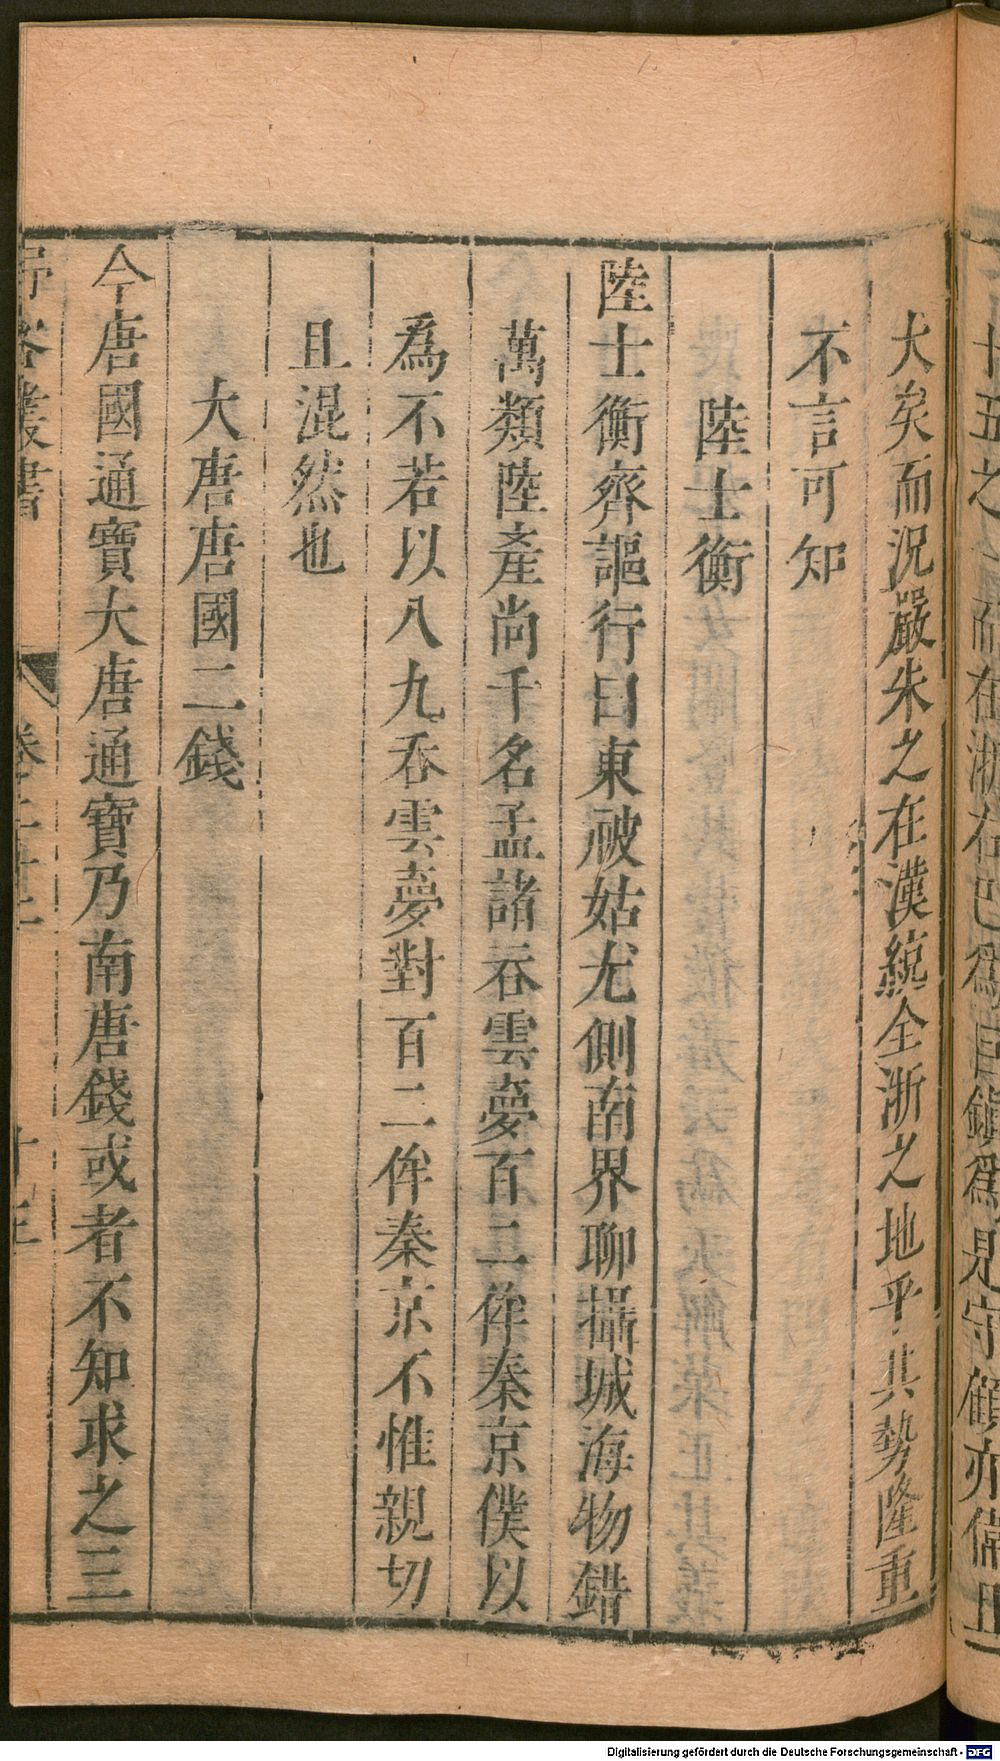 大矣而況嚴朱之在漢統全浙之地乎其勢隆重
不言可知
陸士衡
陸士衡齊謳行曰東被姑尤側南界聊攝城海物錯
萬類陸產尚千名孟諸吞雲夢百二侔秦京僕以
為不若以八九吞雲夢對百二侔秦京不惟親切
且混然也
大唐唐國二錢
今唐國通寶大唐通寶乃南唐錢或者不知求之三
叢書
Digitalisierung gefördert durch die Deutsche Forschungsgemeinschaft - DFG